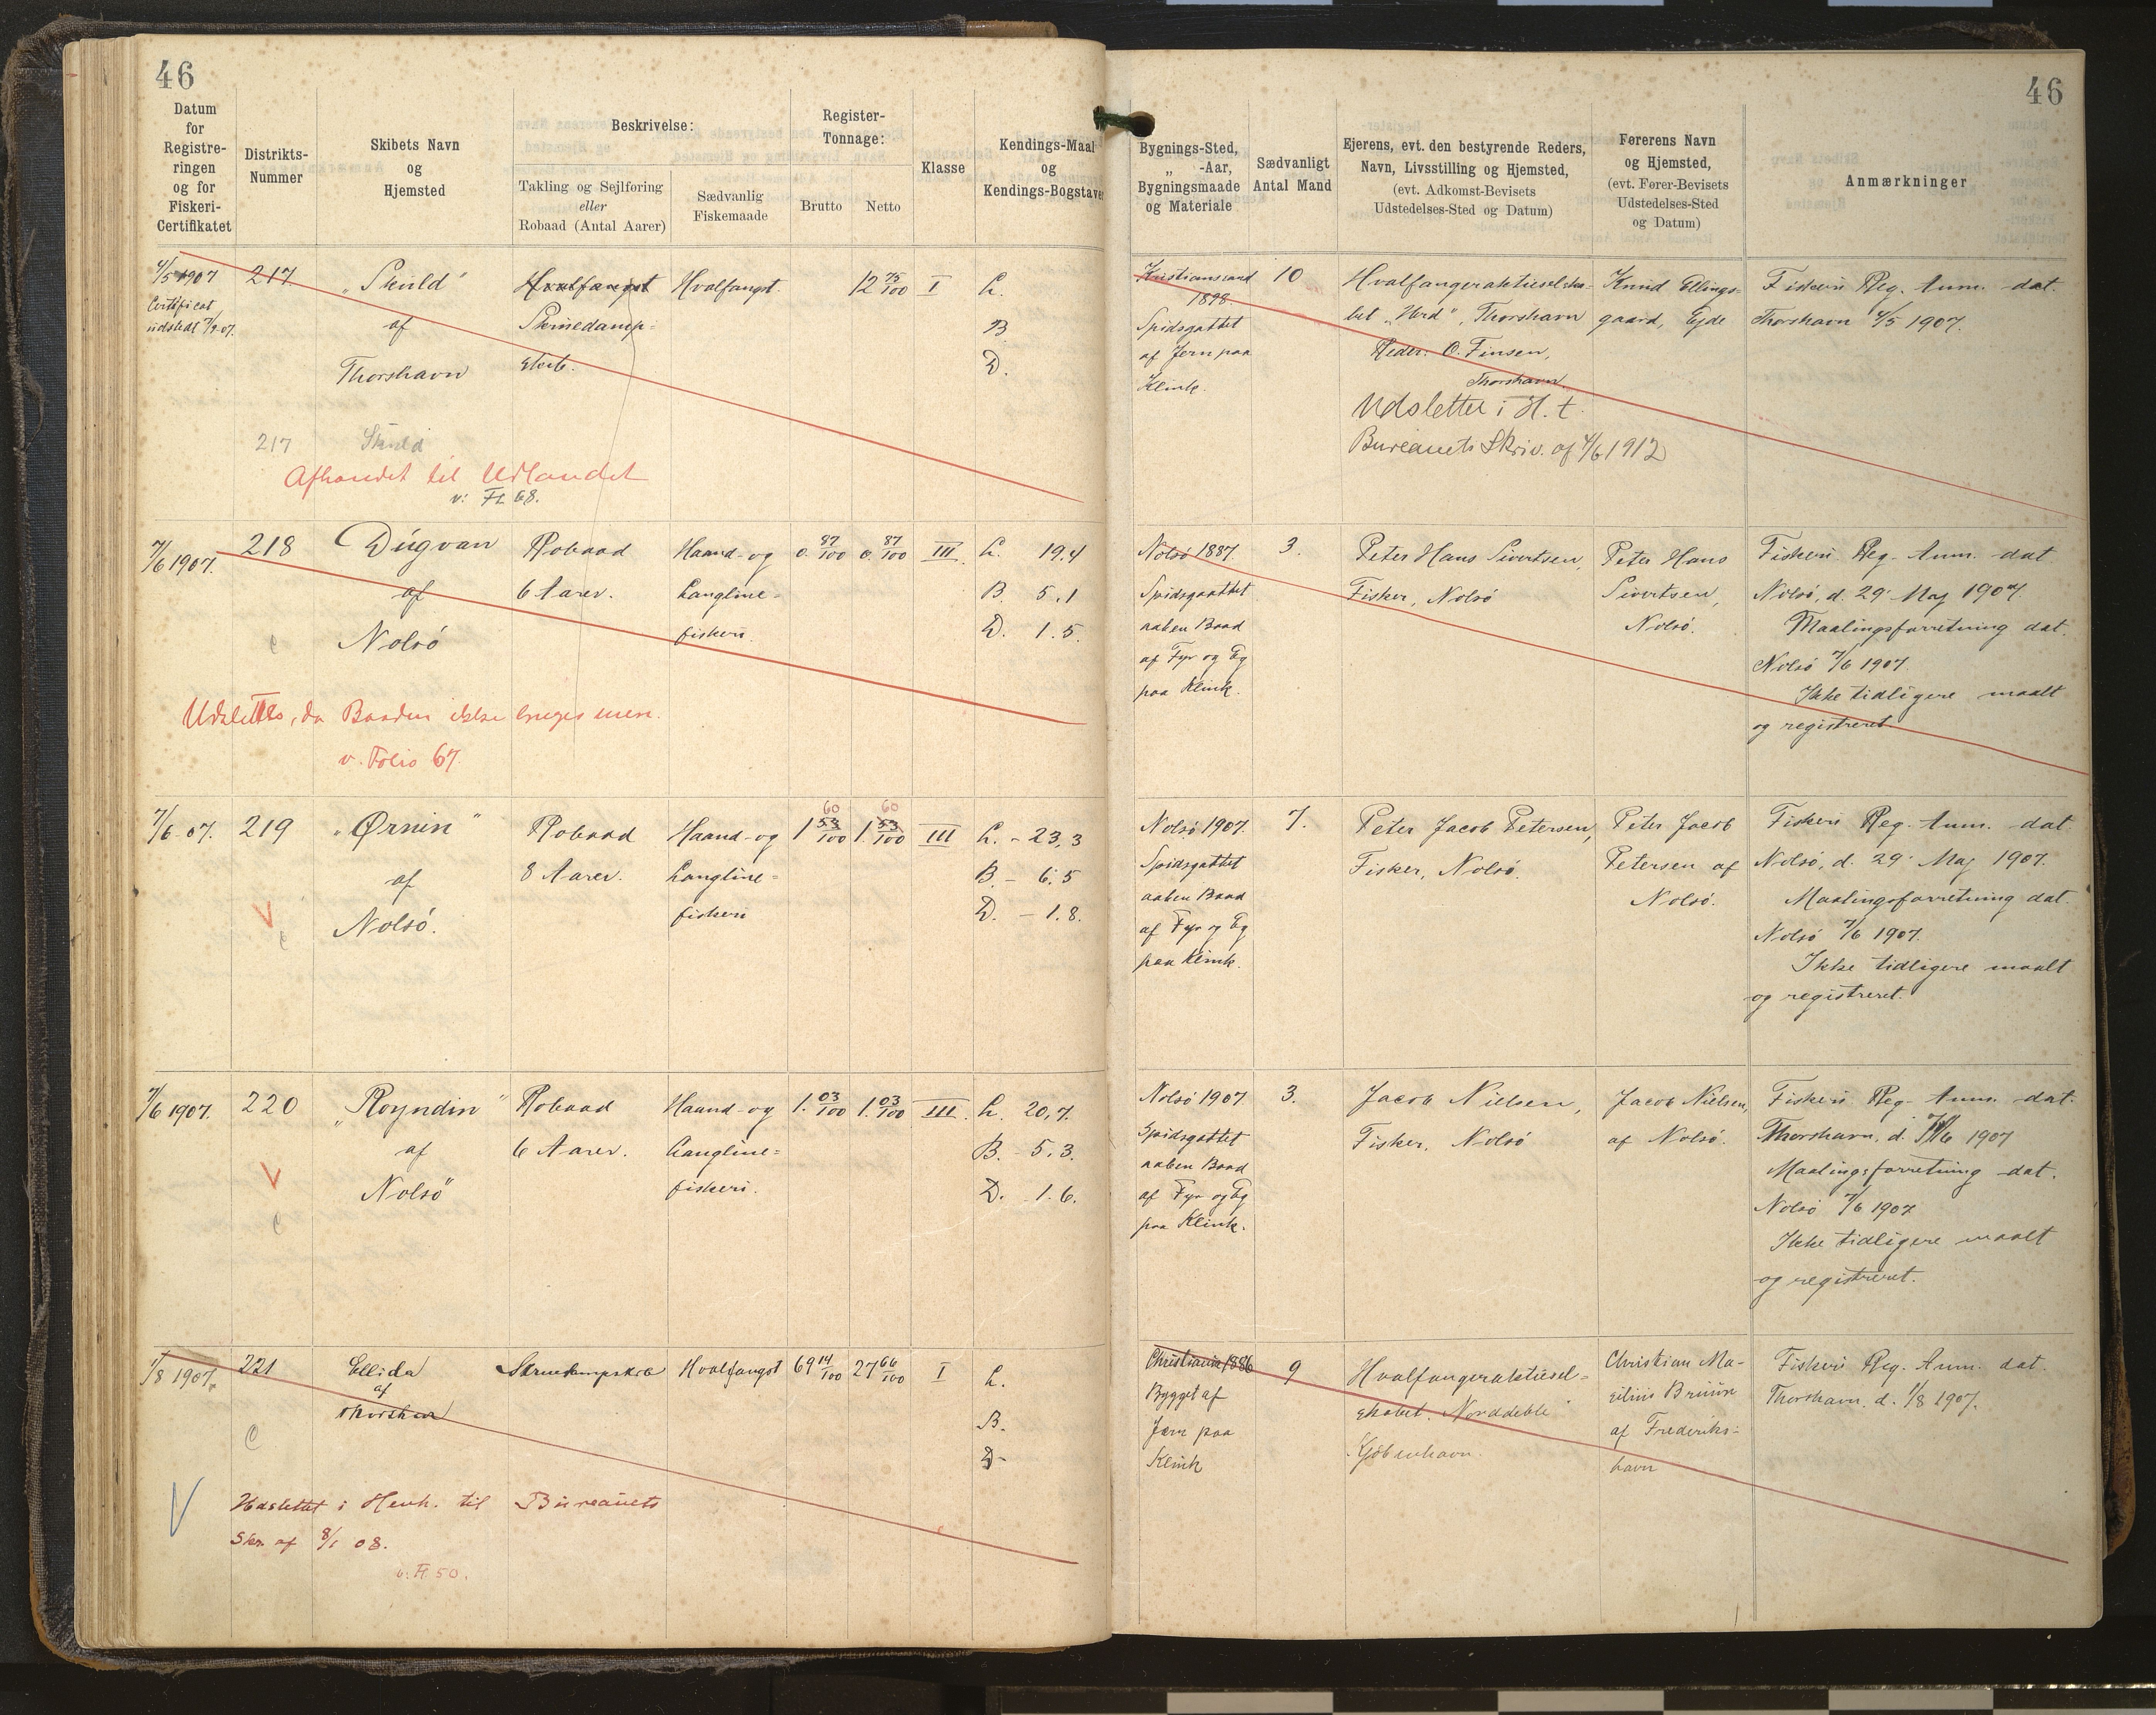 46
46
Datum for Registreringen og for Fiskeri-Certifikatet
Distrikts-Nummer
Skibets Navn og Hjemsted
Beskrivelse:
Takling og Sejlføring eller Robaad (Antal Aarer)
Sædvanlig Fiskemaade
Register-Tonnage:
Brutto
Netto
Klasse
Kendings-Maal og Kendings-Bogstaver
Bygnings-Sted, „ -Aar, Bygningsmaade og Materiale
Sædvanligt Antal Mand
Ejerens, evt. den bestyrende Reders, Navn, Livsstilling og Hjemsted, (evt. Adkomst-Bevisets Udstedelses-Sted og Datum)
Førerens Navn og Hjemsted, (evt. Fører-Bevisets Udstedelses-Sted og Datum)
Anmærkninger
4/5 1907
Certificat
udstedt 7/9 07.
217
„Skuld"
af
Thorshavn
Hvalfangst
Skruedamp-
skib.
Hvalfangst.
12 75/100
I
L.
B.
D.
Kristianssand
1898
Spidsgattet
af Jern paa
Klink.
10
Hvalfangeraktieselska-
bet „Urd", Thorshavn
Reder: O. Finsen,
Thorshavn
Udslettet i H. t.
Bureauets Skriv. af 4/6 1912
Knud Ellings-
gaard, Ejde
Fiskeri Reg. Anm. dat.
Thorshavn 4/5 1907.
217 Skuld
Afhændet til Udlandet
v: Fl 68.
7/6 1907.
218
Dúgvan
af
Nolsö
Robaad
6 Aarer.
Haand- og
Langline-
fiskeri.
0. 87/100
0. 87/100
III.
L. 19.4
B. 5.1
D. 1.5.
Nolsö 1887.
Spidsgattet
aaben Baad
af Fyr og Eg
paa Klink.
3.
Peter Hans Sivertsen,
Fisker, Nolsö
Peter Hans
Sivertsen,
Nolsö.
Fiskeri Reg. Anm. dat
Nolsö, d. 29. Maj 1907.
Maalingsforretning dat.
Nolsö 7/6 1907.
Ikke tidligere maalt
og registreret
Udslettes, da Baaden ikke bruges mere.
v. Folio 67.
7/6 07.
219
„Ørnin"
af
Nolsö.
Robaad
8 Aarer.
Haand- og
Langline-
fiskeri
60 60
1 53/100
1. 53/100
III
L. - 23.3
B. - 6.5
D. - 1.8.
Nolsö 1907.
Spidsgattet
aaben Baad
af Fyr og Eg
paa Klink.
7.
Peter Jacob Petersen,
Fisker, Nolsö.
Peter Jacob
Petersen af
Nolsö.
Fiskeri Reg. Anm. dat
Nolsö, d. 29. Maj 1907.
Maalingsforretning dat.
Nolsö 7/6 1907.
Ikke tidligere maalt
og registreret.
7/6 1907.
220
„Royndin"
af
Nolsö
Robaad
6 Aarer.
Haand- og
Langline-
fiskeri.
1. 03/100
1. 03/100
III.
L. 20,7.
B. - 5.3.
D. - 1.6.
Nolsö 1907.
Spidsgattet
aaben Baad
af Fyr og Eg
paa Klink.
3.
Jacob Nielsen,
Fisker, Nolsö
Jacob Nielsen,
af Nolsö.
Fiskeri Reg. Anm. dat.
Thorshavn, d. 7/6 1907
Maalingsforretning dat.
Nolsö 7/6 1907
Ikke tidligere maalt
og registreret.
1/8 1907.
221
Ellida
af
Thorshavn
Skruedampskib
Hvalfangst
69 14/100
27 66/100
I
L.
B.
D.
Christiania 1886
Bygget af
Jern paa
Klink
9
Hvalfangeraktiesel-
skabet „Norddeble"
Kjöbenhavn.
Christian Ma-
Bruun
af Frederiks-
havn
Fiskeri Reg. Anm. dat.
Thorshavn, d. 1/8 1907.
Udslettet i Henh. til Bureauets
Skr. af 8/1 08.
v: Fl 50.